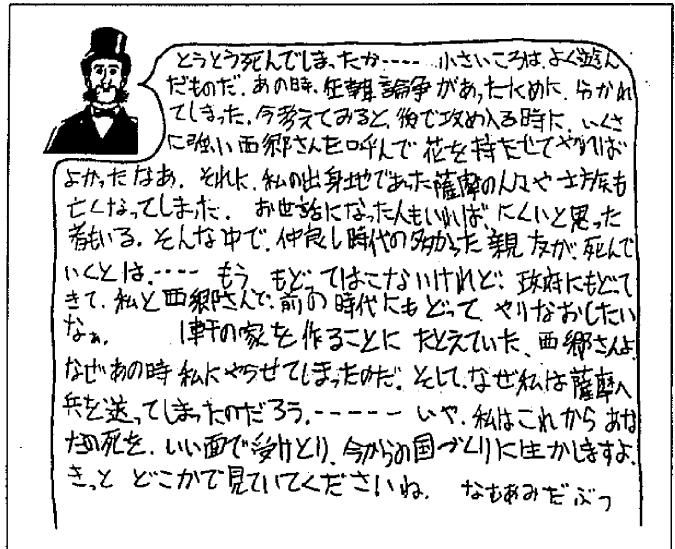 とうとう死んでしまったか---- 小さいころは、よく遊ん
だものだ。あの時、征韓論争があったために、分かれ
てしまった。今考えてみると、後で攻め入る時に、いくさ
に強い西郷さんを呼んで花を持たせてやれば
よかったなあ。それに、私の出身地であった薩摩の人々や士族も
亡くなってしまった。お世話になった人もいれば、にくいと思った
者もいる。そんな中で、仲良し時代の多かった親友が、死んで
いくとは、---- もう もどってはこないけれど、政府にもどって
きて、私と西郷さんで、前の時代にもどって、やりなおしたい
なぁ。 1軒の家を作ることに たとえていた、西郷さんよ、
なぜあの時私にやらせてしまったのだ。そして、なぜ私は薩摩へ
兵を送ってしまったのだろう。------ いや、私はこれから あな
たの死を、いい面で受けとり、今からの国づくりに生かしますよ。
きっと どこかで見ていてくださいね。 なむあみだぶつ